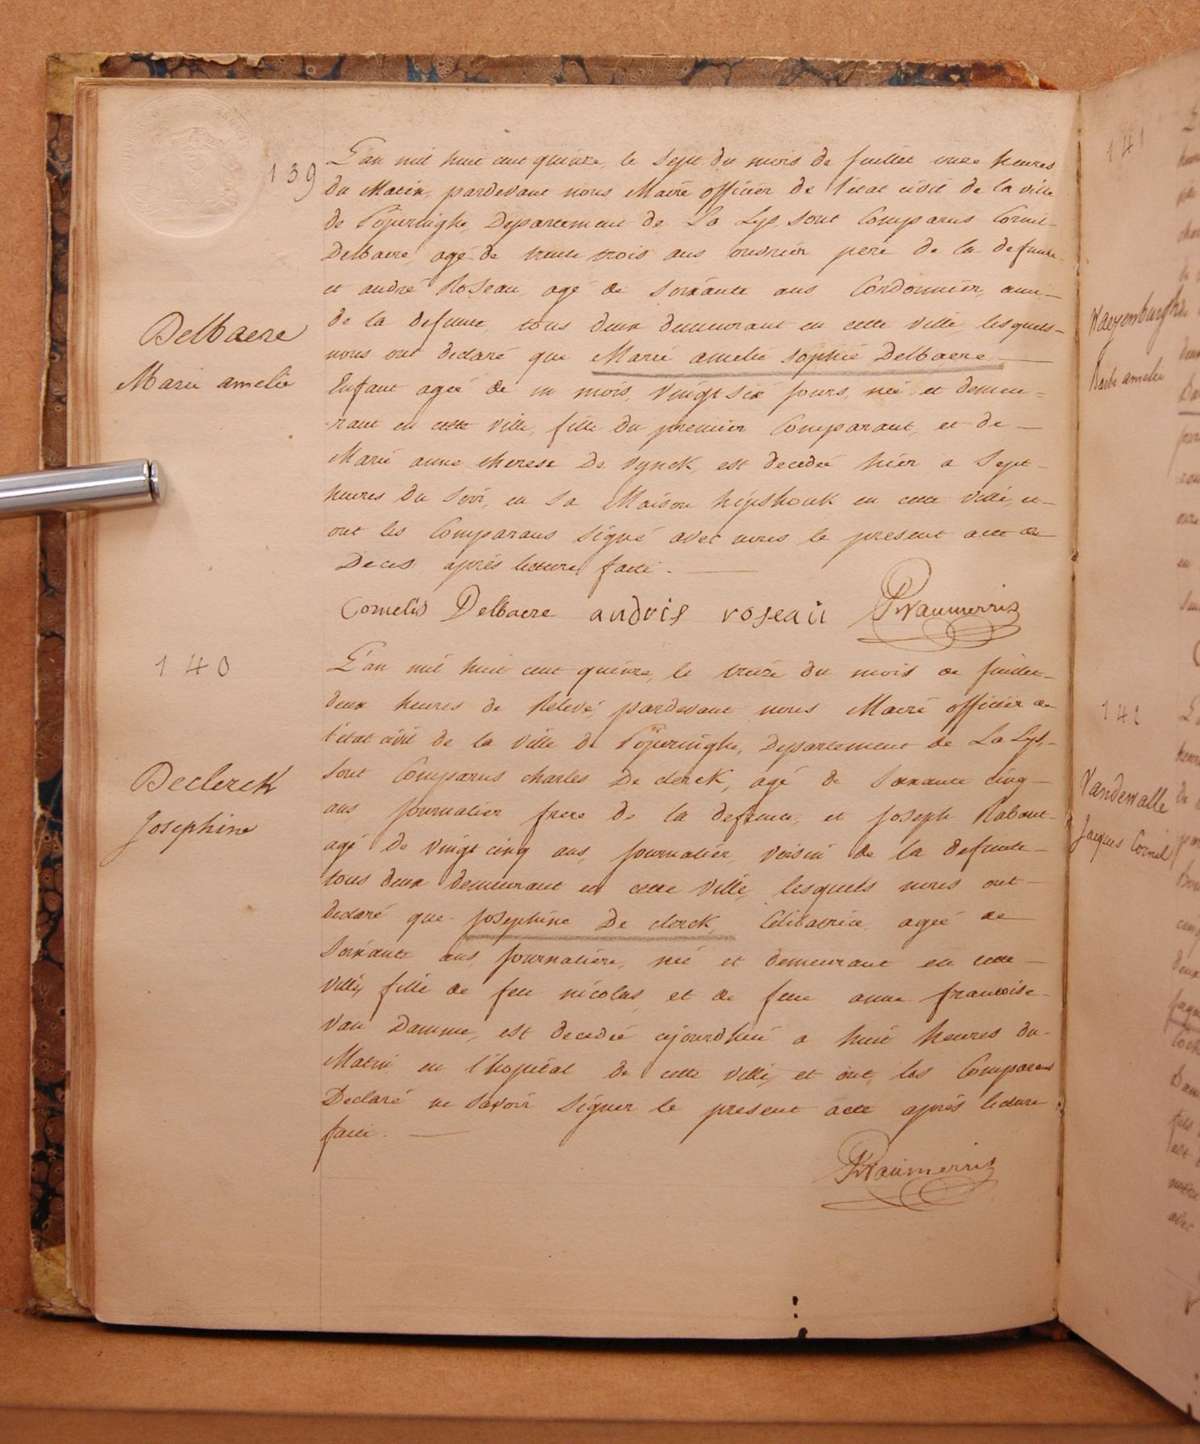 139
L'an mil huit cent quinze, le sept du mois de juillet onze heures
du Matin, pardevant nous Maire officier de l'etat civil de la ville
de Poperinghe, Departement de La Lys, sont Comparus Cornil
Delbaere, agé de trente trois ans ouvrier pere de la defunte
et andré Roseau, agé de soixante ans Cordonnier, ami
de la defunte, tous deux demeurant en cette ville lesquels
nous ont declaré que Marie amelie Sophie Delbaere
Delbaere
Marie amelie
Enfant agée de un mois, vingt six jours, née et demeu-
rant en cette ville, fille du premier Comparant, et de
Marie anne therese De Vynck, est decedée hier a sept
heures du soir, en sa Maison en cette ville, et
ont les Comparans signé avec nous le present acte de
Deces après lecture faite.
Cornelis Delbaere andris roseau PVanmerris
140
L'an mil huit cent quinze, le treize du mois de juillet
deux heures de Relevé, pardevant nous Maire officier de
l'etat civil de la ville de Poperinghe, Departement de La Lys,
sont Comparus charles De clerck, agé de soixante cinq
ans journalier frere de la defunte, et Joseph Rabaut
agé de vingt cinq ans, journalier, voisin de la defunte
tous deux demeurant en cette ville, lesquels nous ont
declaré que Josephine De clerck, Celibatrice, agée de
Declerck
Josephine
soixante ans, journaliere, née et demeurant en cette
ville, fille de feu nicolas, et de feue anne francoise
Van Damme, est decedée ajourdhui a huit heures du
Matin en l'hopital de cette ville, et ont les Comparans
Declaré ne savoir signer le present acte après lecture
faite.
PVanmerris
141
Karyenburghe
amelie
142
Vandewalle
Jacques Cornil